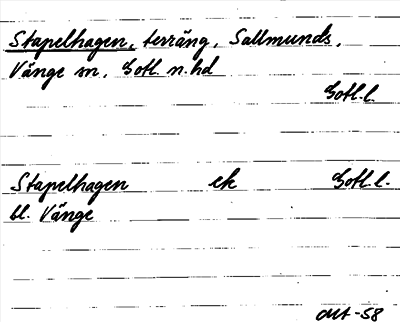 Stapelhagen, terräng, Sallmunds,
Vänge sn, Gotl. n. hd
Gotl. l.
Stapelhagen ek Gotl. l.
bl. Vänge
-58